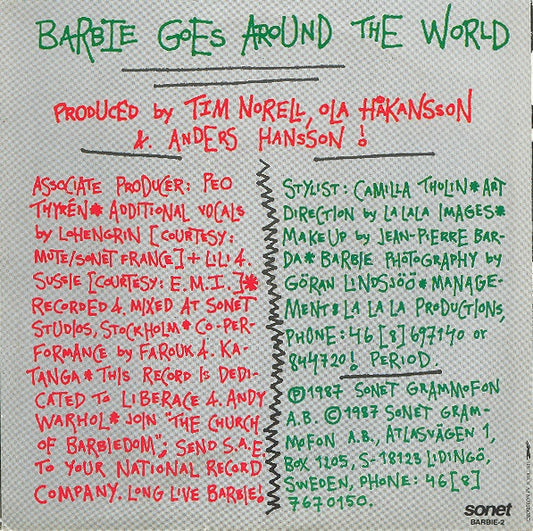 BARBIE GOES AROUND THE WORLD
PRODUCED by TIM NORELL, OLA HÅKANSSON
&. ANDERS HANSSON!
ASSOCIATE PRODUCER: PEO
THYRÉN* ADDITIONAL VOCALS
by LOHENGRIN [COURTESY:
MUTE/SONET FRANCE] + LILI &.
SUSSIE [COURTESY: E.M.I.]*
RECORDED &. MIXED AT SONET
STUDIOS, STOCKHOLM* CO-PER-
FORMANCE by FAROUK &. KA-
TANGA* THIS RECORD IS DEDI-
CATED TO LIBERACE &. ANDY
WARHOL* JOIN "THE CHURCH
OF BARBIEDOM"; SEND S.A.E.
TO YOUR NATIONAL RECORD
COMPANY. LONG LIVE BARBIE!
STYLIST: CAMILLA THULIN* ART
DIRECTION by LA LA LA IMAGES*
MAKEUP by JEAN-PIERRE BAR-
DA* BARBIE PHOTOGRAPHY by
GÖRAN LINDSJÖÖ* MANAGE-
MENT: LA LA LA PRODUCTIONS,
PHONE: 46 [8] 697140 or
844720! PERIOD.
Ⓟ1987 SONET GRAMMOFON
A.B. ©1987 SONET GRAM-
MOFON A.B., ATLASVÄGEN 1,
BOX 1205, S-18123 LIDINGÖ,
SWEDEN, PHONE: 46 [8]
7670150.
sonet
BARBIE-2